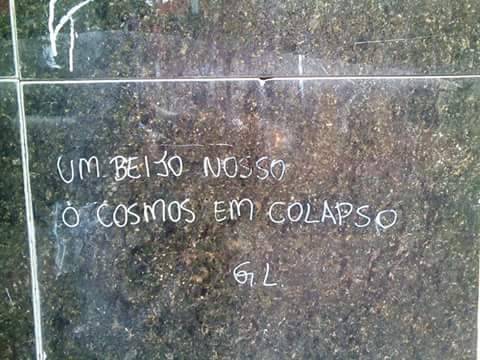 UM BEIJO NOSSO
O COSMOS EM COLAPSO
G.L.